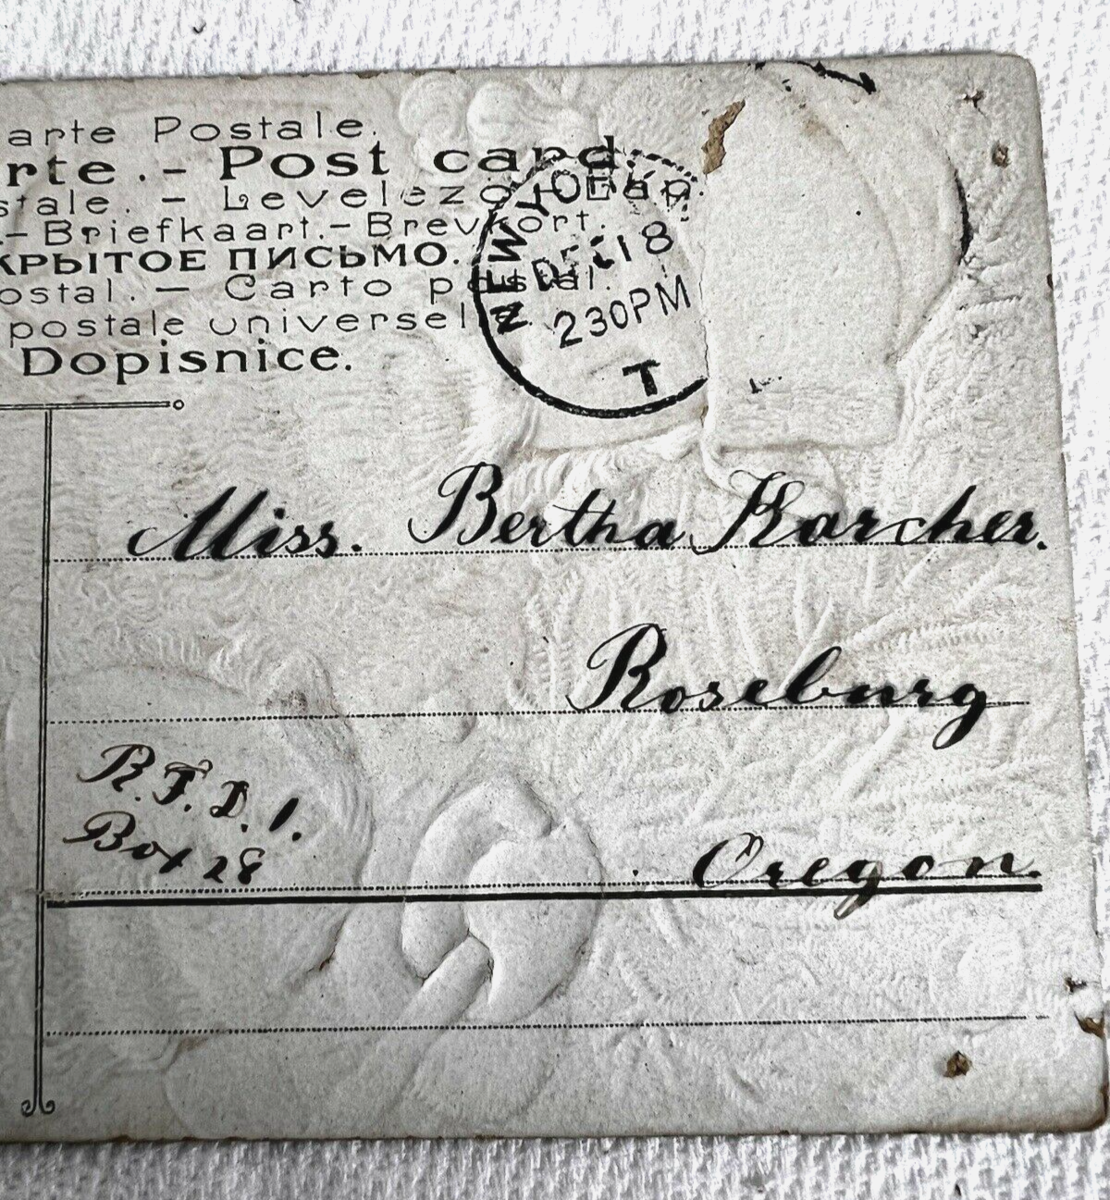 arte Postale.
rte. - Post card.
stale. - Levelező-Lap.
- Briefkaart. - Brevkort.
КРЫТОЕ ПИСЬМО.
ostal. - Carto postal.
postale universel
Dopisnice.
NEW YORK
18
230PM
T
Miss. Bertha Karcher.
Roseburg
R.F.D. 1.
Box 28
Oregon.